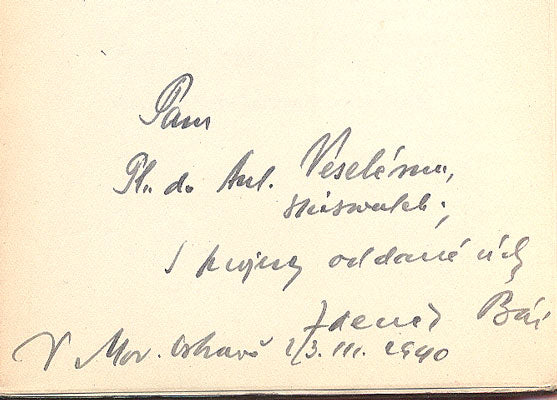 Panu
Ph. dr. Ant. Veselému,
S projevy oddané úcty
Zdeněk Bár
V Mor. Ostravě 2/3. III. 1940